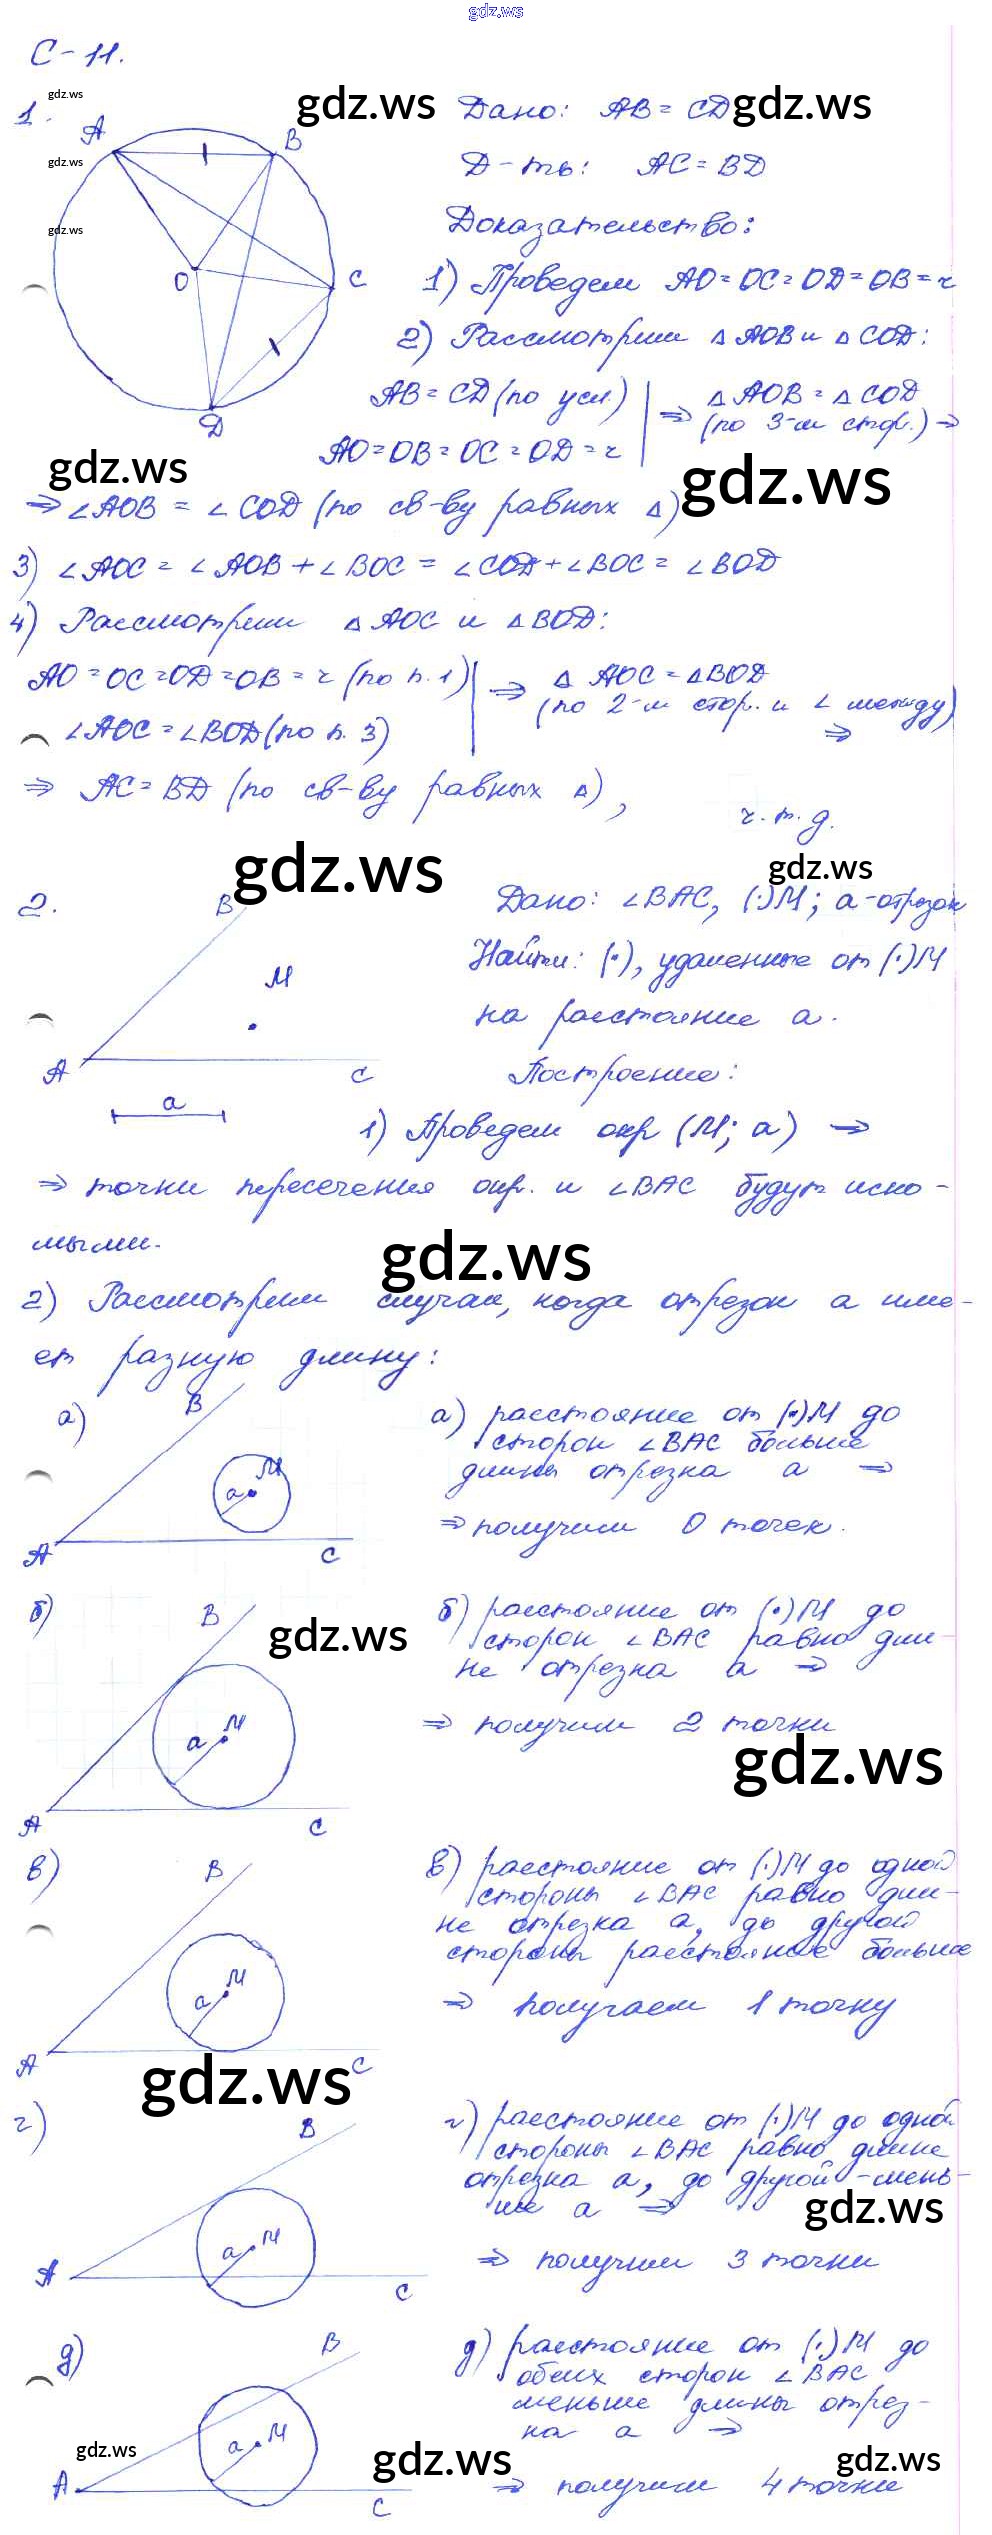 gdz.ws
С-11.
1.
gdz.ws
gdz.ws
gdz.ws
A B C D O
gdz.ws
Дано: AB = CD
gdz.ws
Д-ть: AC = BD
Доказательство:
1) Проведем AO = OC = OD = OB = r
2) Рассмотрим △ AOB и △ COD:
AB = CD (по усл.)
AO = OB = OC = OD = r
⇒ △ AOB = △ COD
(по 3-м стор.) ⇒
gdz.ws
gdz.ws
⇒ ∠AOB = ∠ COD (по св-ву равных △)
3) ∠AOC = ∠AOB + ∠BOC = ∠COD + ∠BOC = ∠BOD
4) Рассмотрим △ AOC и △BOD:
AO = OC = OD = OB = r (по п. 1)
∠AOC = ∠BOD (по п. 3)
⇒ △ AOC = △BOD
(по 2-м стор. и ∠ между)
⇒
⇒ AC = BD (по св-ву равных △),
ч. т. д.
gdz.ws
gdz.ws
2.
B
M
A C
a
Дано: ∠BAC, (·)M; a-отрезок
Найти: (·), удаленные от (·)M
на расстояние a.
Построение:
1) Проведем окр (M; a) ⇒
⇒ точки пересечения окр. и ∠BAC будут иско-
мыми.
gdz.ws
2) Рассмотрим случаи, когда отрезок a име-
ет разную длину:
а)
B
M
a
A C
а) расстояние от (·)M до
сторон ∠BAC больше
длины отрезка a ⇒
⇒ получим 0 точек.
б)
B
gdz.ws
M
a
A C
б) расстояние от (·)M до
сторон ∠BAC равно дли-
не отрезка a ⇒
⇒ получим 2 точки
gdz.ws
в)
B
M
a
A C
gdz.ws
в) расстояние от (·)M до одной
стороны ∠BAC равно дли-
не отрезка a, до другой
стороны расстояние больше
⇒ получаем 1 точку
г)
B
M
a
A C
г) расстояние от (·)M до одной
стороны ∠BAC равно длине
отрезка a, до другой -мень-
ше a ⇒
gdz.ws
⇒ получим 3 точки
д)
B
M
a
A C
д) расстояние от (·)M до
обеих сторон ∠BAC
меньше длины отрез-
ка a ⇒
⇒ получим 4 точки
gdz.ws
gdz.ws
gdz.ws